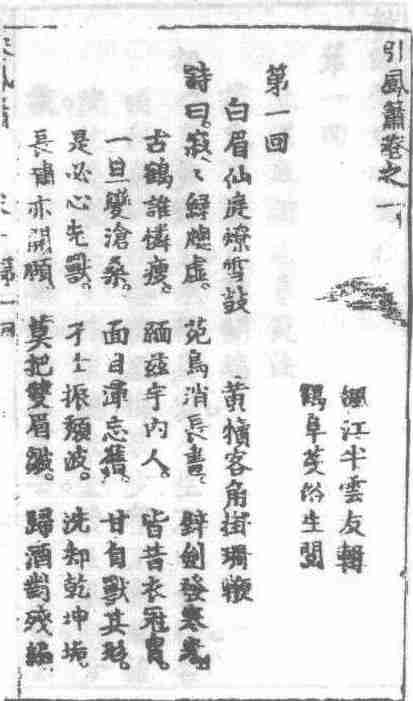 引鳳簫卷之一
楓江半雲友輯
鶴阜芟俗生閱
第一回
白眉仙庭燎雪鼓 黃犢客角掛瑚鞭
詩曰。寂〻 虛。 苑鳥消長晝。 劍發寒
古鶴誰憐瘦。 緬茲宇內人。 皆昔衣冠冑。
一旦變滄桑。 面目渾忘舊。 甘自獸其形。
是必心先獸。 才士振頹波。 洗却乾坤垢。
長嘯亦開顏。 莫把雙眉皺。 歸酒對殘編
第一回